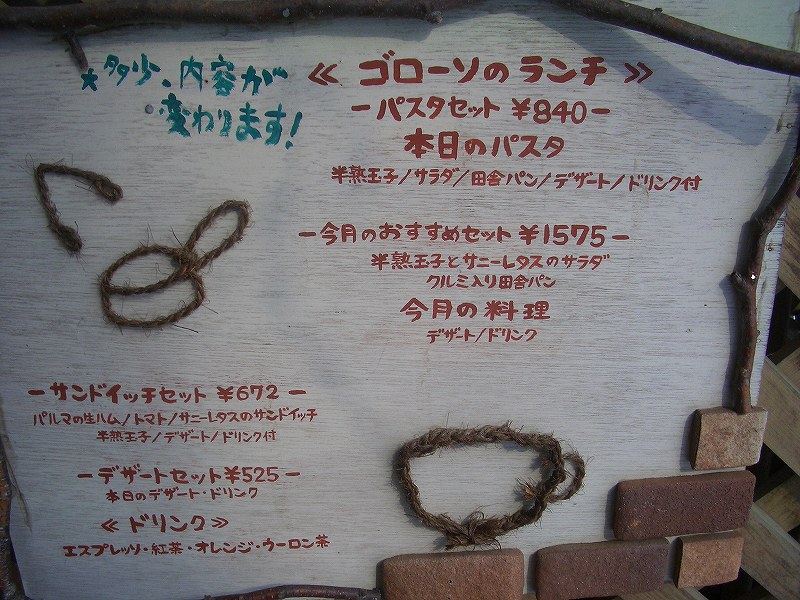 *多少、内容が
変わります!
≪ ゴローソのランチ ≫
ーパスタセット ¥840ー
本日のパスタ
半熟玉子/サラダ/田舎パン/デザート/ドリンク付
ー今月のおすすめセット ¥1575ー
半熟玉子とサニーレタスのサラダ
クルミ入り田舎パン
今月の料理
デザート/ドリンク
ーサンドイッチセット ¥672ー
パルマの生ハム/トマト/サニーレタスのサンドイッチ
半熟玉子/デザート/ドリンク付
ーデザートセット¥525ー
本日のデザート・ドリンク
≪ドリンク≫
エスプレッソ・紅茶・オレンジ・ウーロン茶